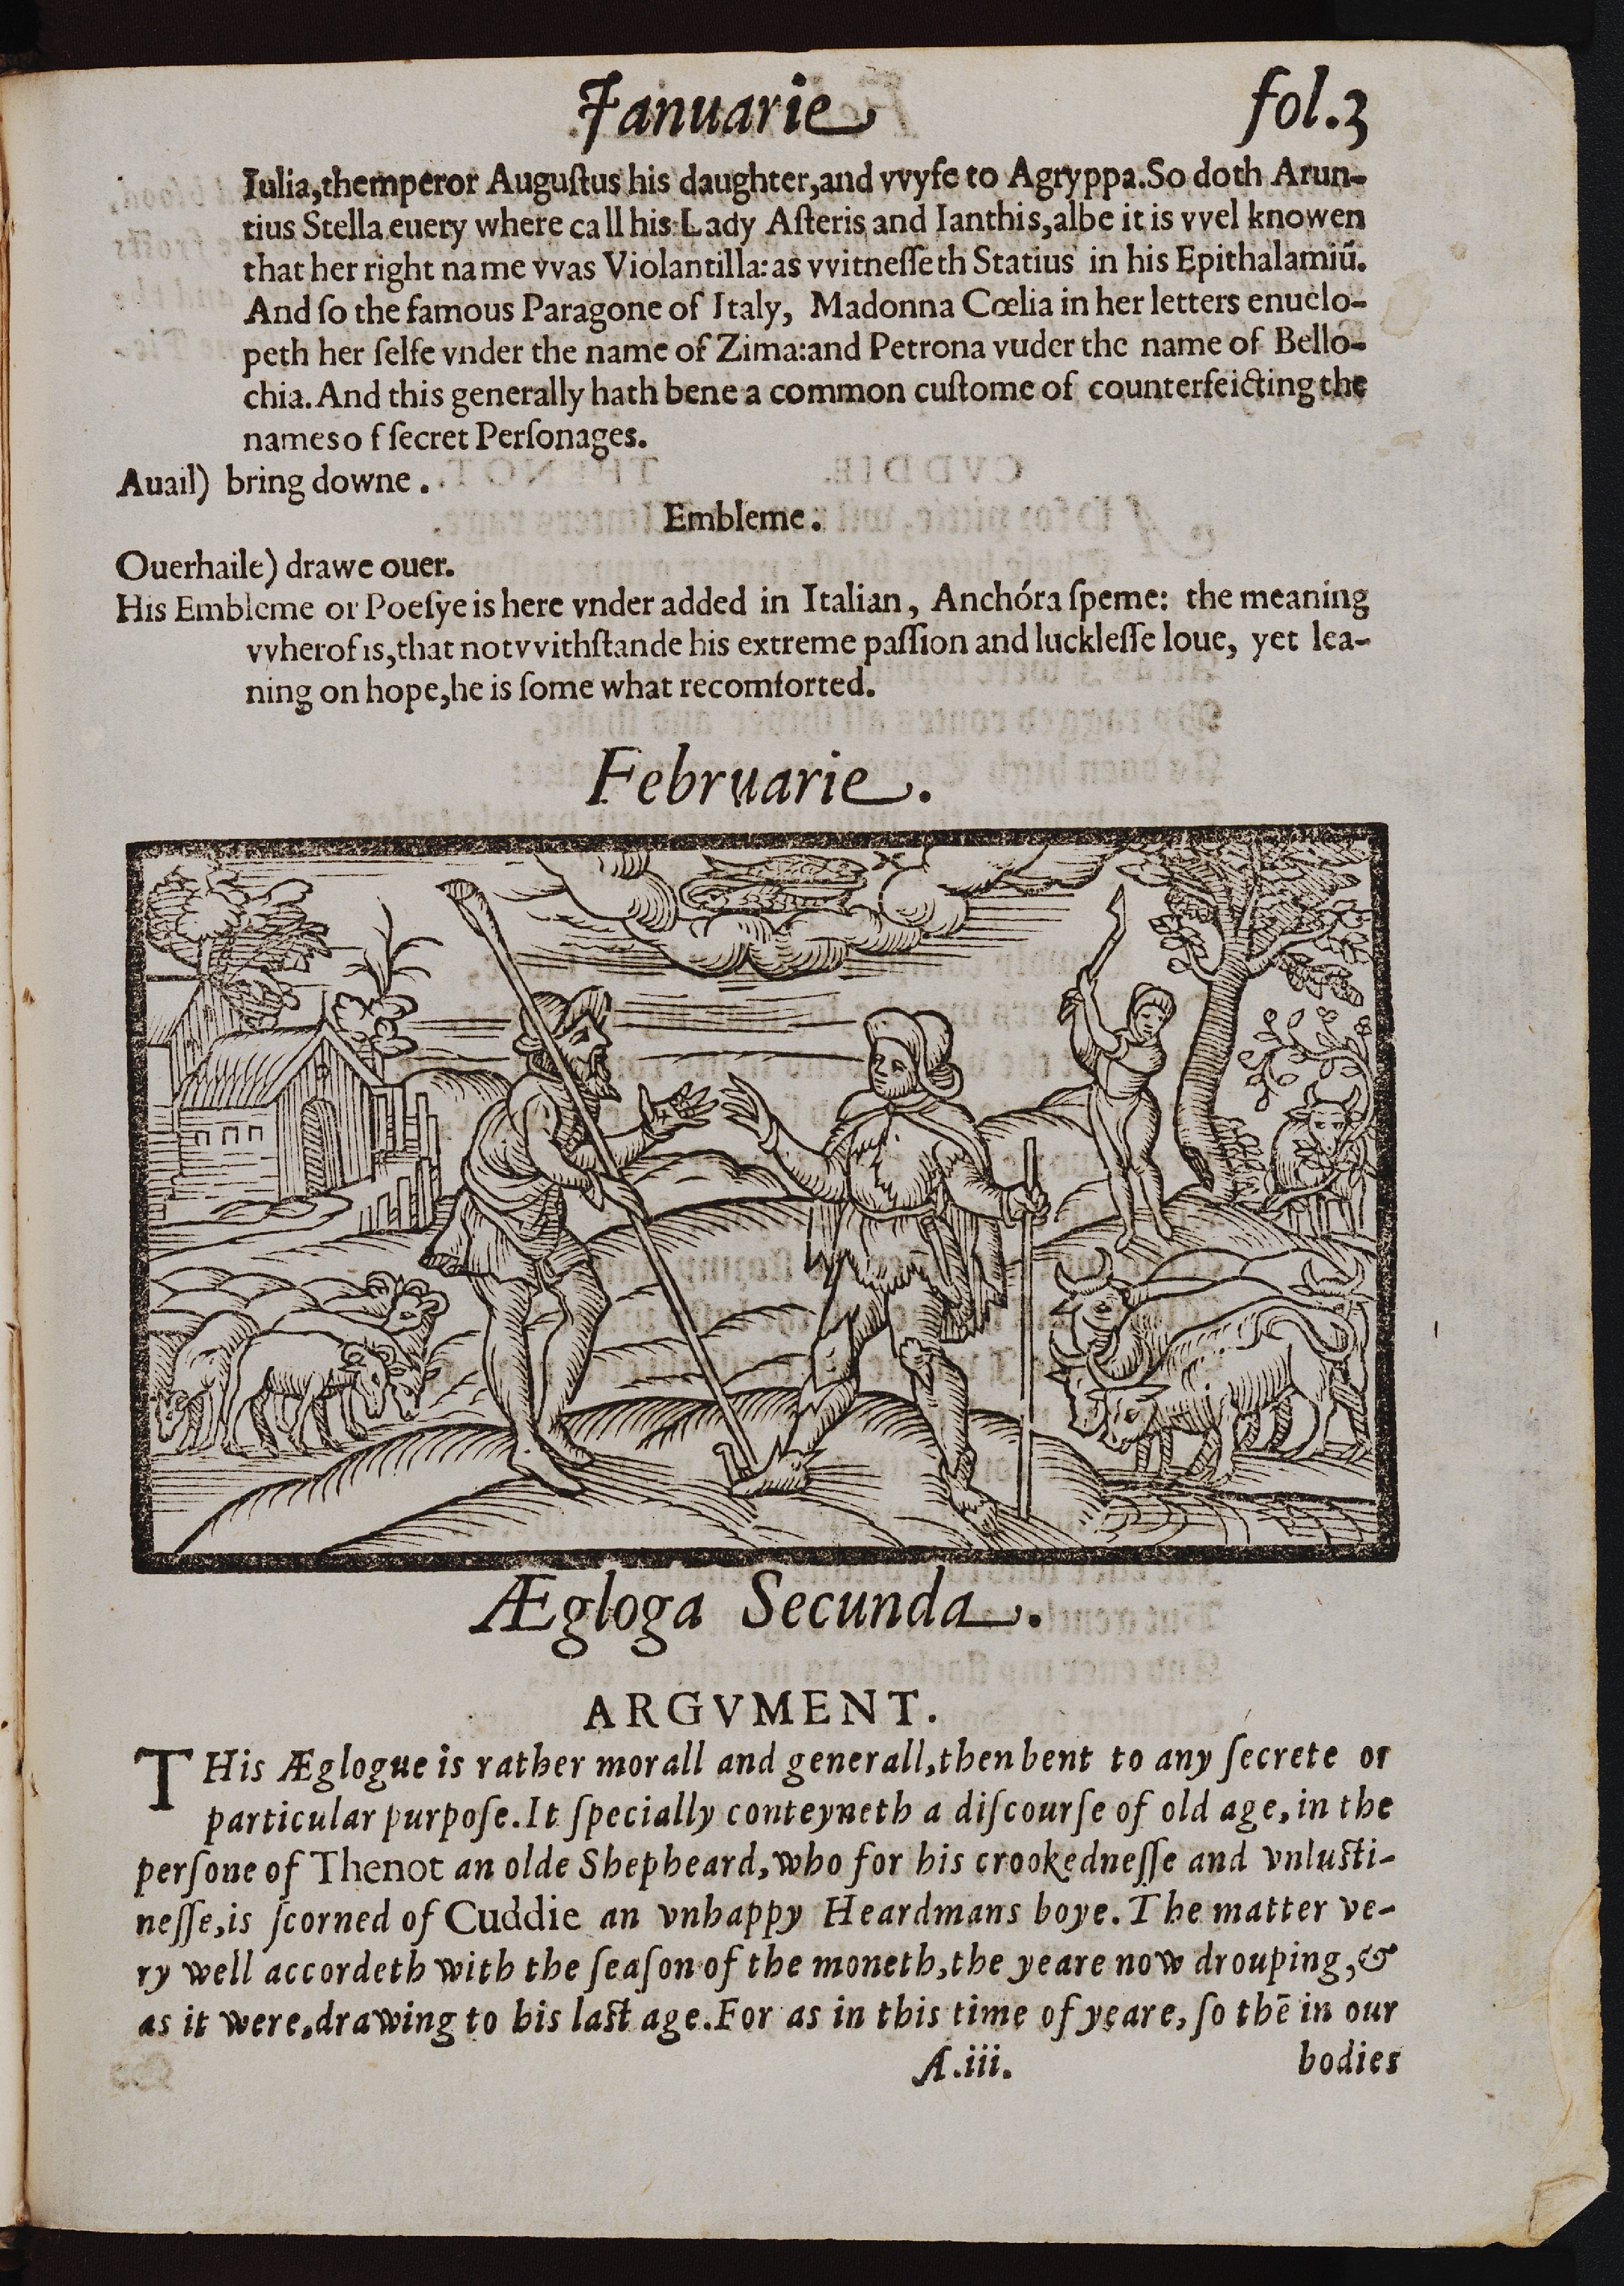 Ianuarie fol.3
Iulia,themperor Auguſtus his daughter,and vvyfe to Agryppa.So doth Arun-
tius Stella euery where call his Lady Aſteris and Ianthis,albe it is vvel knowen
that her right name vvas Violantilla:as vvitneſſeth Statius in his Epithalamiũ.
And ſo the famous Paragone of Italy, Madonna Cœlia in her letters enuelo-
peth her ſelfe vnder the name of Zima:and Petrona vuder the name of Bello-
chia.And this generally hath bene a common cuſtome of counterfeicting the
names o f ſecret Perſonages.
Auail) bring downe .
Embleme.
Ouerhaile) drawe ouer.
His Embleme or Poeſye is here vnder added in Italian, Anchóra ſpeme: the meaning
vvherof is,that notvvithſtande his extreme paſſion and luckleſſe loue, yet lea-
ning on hope,he is ſome what recomforted.
Februarie.
Ægloga Secunda.
ARGVMENT.
THis Æglogue is rather morall and generall,then bent to any ſecrete or
particular purpoſe.It ſpecially conteyneth a diſcourſe of old age, in the
perſone of Thenot an olde Shepheard,who for his crookedneſſe and vnluſti-
neſſe,is ſcorned of Cuddie an vnhappy Heardmans boye.The matter ve-
ry well accordeth with the ſeaſon of the moneth,the yeare now drouping,&
as it were,drawing to his laſt age.For as in this time of yeare, ſo thē in our
A.iii. bodies